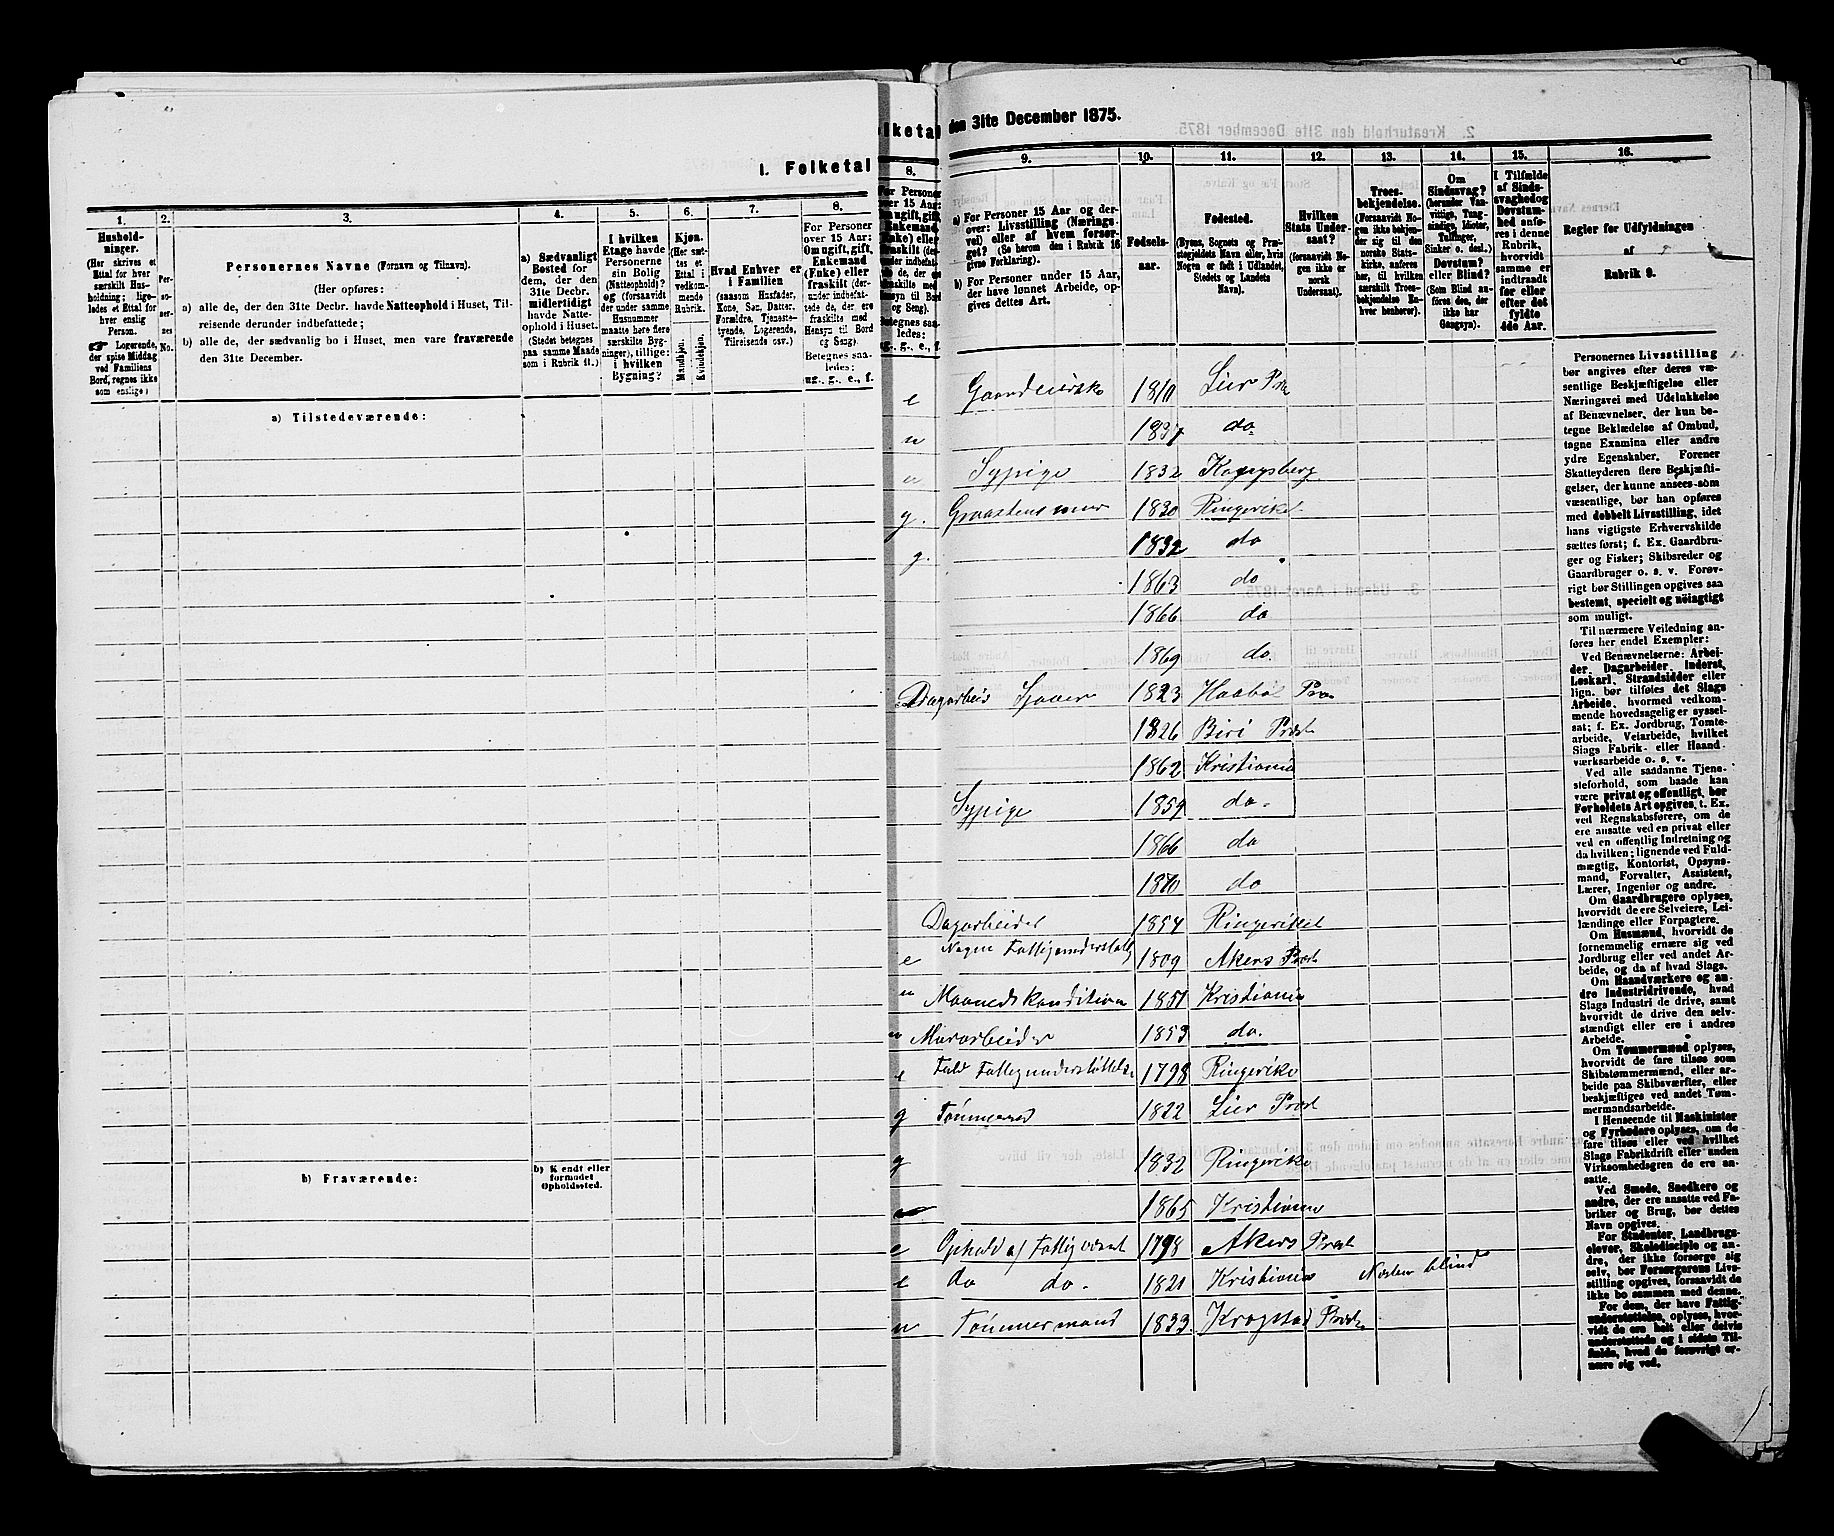 1. Folketal
1.
2.
3.
4.
5.
6.
7.
8.
Hushold-
ninger.
(Her skrives et
Ettal for hver
særskilt Hus-
holdning; lige-
ledes et Ettal for
hver enslig
Person.
Logerende,
der spise Middag
ved Familiens
Bord, regnes ikke
som enslige)
Per-
so-
ner-
nes
No.
Personernes Navne (Fornavn og Tilnavn).
(Her opføres:
a) alle de, der den 31te Decbr. havde Natteophold i Huset, Til-
reisende derunder indbefattede;
b) alle de, der sædvanlig bo i Huset, men vare fraværende
den 31te December.
a) Sædvanligt
Bosted for
dem, der den
31te Decbr.
midlertidigt
havde Natte-
ophold i Huset.
(Stedet betegnes
paa samme Maade
som i Rubrik 11.)
I hvilken
Etage havde
Personerne
sin Bolig
(Natteophold)?
og (forsaavidt
der under samme
Husnummer
maatte høre flere
særskilte Byg-
ninger), tillige:
i hvilken
Bygning?
Kjøn.
(Her sæt-
tes et
Ettal i
vedkom-
mende
Rubrik.
Mandskjøn.
Kvindekjøn.
Hvad Enhver er
i Familien
(saasom Husfader,
Kone, Søn, Datter,
Forældre, Tjeneste-
tyende, Logerende,
Tilreisende osv.)
For Personer
over 15 Aar:
Om ugift, gift,
Enkemand
(Enke) eller
fraskilt (der-
under indbefat-
tede de, der ere
fraskilte med
Hensyn til Bord
og Seng).
Betegnes saa-
ledes:
ug., g., e., f.
a) Tilstedeværende:
b) Fraværende:
b) Kjendt eller
formodet
Opholdssted.
olketal
8.
den 31te December 1875.
9.
10.
11.
12.
13.
14.
15.
16.
a) For Personer 15 Aar og der-
over: Livsstilling (Nærings-
vei) eller af hvem forsør-
get? (Se herom den i Rubrik 16
givne Forklaring).
b) For Personer under 15 Aar,
der have lønnet Arbeide, op-
gives dettes Art.
Fødsels-
aar.
Fødested.
(Byens, Sognets og Præ-
stegjeldets Navn eller, hvis
Nogen er født i Udlandet,
Stedets og Landets
Navn).
Hvilken
Stats Under-
saat?
(forsaavidt No-
gen ikke er
norsk
Undersaat).
Troes-
bekjendelse.
(Forsaavidt No-
gen ikke bekjen-
der sig til den
norske Stats-
kirke, anføres
her, til hvilken
særskilt Troes-
bekjendelse En-
hver henhører).
Om
Sindssvag?
(herunder Van-
vittige, Tung-
sindige, Idioter,
Tullinger,
Sinker o. desl.)
Døvstum?
eller Blind?
(Som Blind an-
føres den, der
ikke har
Gangsyn).
I Tilfælde
af Sinds-
svaghed og
Døvstum-
hed anfø-
res i denne
Rubrik,
hvorvidt
samme er
indtraadt
før eller
efter det
fyldte
4de Aar.
Regler for Udfyldningen
af
Rubrik 9.
e Gaardeierske 1810 Lier Præ
1837 do
Sypige 1832 Kongsberg
g. Graastensmur 1830 Ringerike
g. 1832 do
1863 do
1866 do
1869 do.
Dagarbeid Sjauer 1823 Haabøl Præ
1826 Biri Præst
1862 Kristiania
Sypige 1859 do.
1866 do
1870 do
Dagarbeider 1854 Ringeriket
e Nogen Fattigunderstøtt 1809 Akers Præst
Maanedskondition 1851 Kristiania
Murarbeider 1853 do.
e Fuld Fattigunderstøttelse 1798 Ringerike
g Tømmermd 1822 Lier Præst
g 1832 Ringerike
1865 Kristiania
e Ophold af Fattigvæsnet 1798 Akers Præst
e do do. 1821 Kristiania Næsten blind
Tømmermand 1833 Krogstad Præst
Personernes Livsstilling
bør angives efter deres væ-
sentlige Beskjæftigelse eller
Næringsvei med Udelukkelse
af Benævnelser, der kun be-
tegne Beklædelse af Ombud,
tagne Examina eller andre
ydre Egenskaber. Forener
Skatteyderen flere Beskjæfti-
gelser, der kunne ansees som
væsentlige, bør han opføres
med dobbelt Livsstilling, idet
hans vigtigste Erhvervskilde
sættes først; f. Ex. Gaardbru-
ger og Fisker; Skibsreder og
Gaardbruger o. s. v. Forøv-
rigt bør Stillingen opgives saa
bestemt, specielt og nøiagtigt
som muligt.
Til nærmere Veiledning an-
føres her endel Exempler:
Ved Benævnelserne: Arbei-
der, Dagarbeider, Inderst,
Løskarl, Strandsidder eller
lign. bør tilføies det Slags
Arbeide, hvormed vedkom-
mende hovedsagelig er syssel-
sat; f. Ex. Jordbrug, Tomte-
arbeide, Veiarbeide, hvilket
Slags Fabrik- eller Haand-
værksarbeide o. s. v.
Ved alle saadanne Tjene-
steforhold, som baade kan
være privat og offentligt, bør
Forholdets Art opgives, t. Ex.
ved Regnskabsførere, om de
ere ansatte ved en privat eller
ved en offentlig Indretning og
da hvilken; lignende ved Fuld-
mægtig, Kontorist, Opsyns-
mand, Forvalter, Assistent,
Lærer, Ingeniør og andre.
Om Gaardbrugere oplyses,
hvorvidt de ere Selveiere, Lei-
lændinge eller Forpagtere.
Om Husmænd, hvorvidt de
fornemmelig ernære sig ved
Jordbrug eller ved andet Ar-
beide, og da af hvad Slags.
Om Haandværkere og an-
dre Industridrivende, hvad
Slags Industri de drive, samt
hvorvidt de drive den selv-
stændigt eller ere i andres
Arbeide.
Om Tømmermænd oplyses,
hvorvidt de fare tilsøs som
Skibstømmermænd, eller ar-
beide paa Skibsværfter, eller
beskjæftiges ved andet Tøm-
mermandsarbeide.
I Henseende til Maskinister
og Fyrbødere oplyses, om de
fare tilsøs eller ved hvilket
Slags Fabrikdrift eller anden
Virksomhedsgren de ere an-
satte.
Ved Smede, Snedkere og
andre, der ere ansatte ved Fa-
briker og Brug, bør dettes
Navn opgives.
For Studenter, Landbrugs-
elever, Skoledisciple og an-
dre, der ikke forsørge sig
selv, bør Forsørgerens Livs-
stilling opgives, forsaavidt de
ikke bo sammen med denne.
For dem, der have Fattig-
understøttelse, oplyses, hvor-
vidt de ere helt eller delvis
understøttede og i sidste Til-
fælde, hvad de forøvrigt er-
nære sig ved.